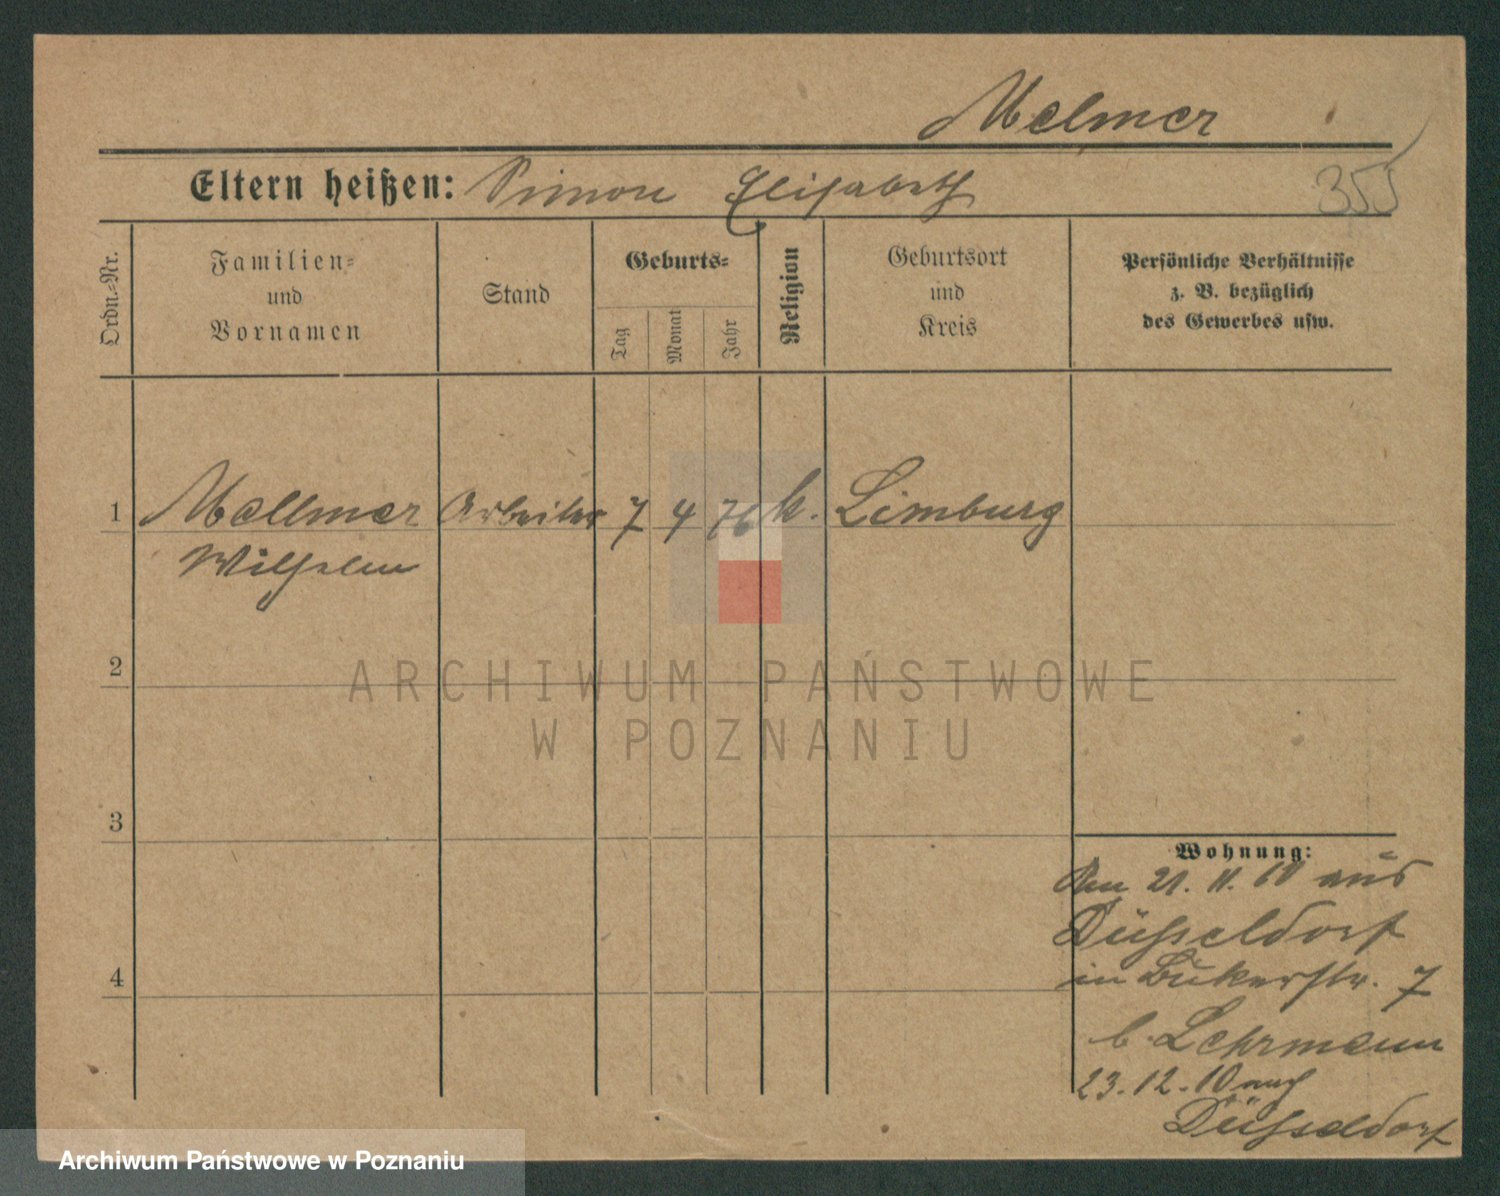 Melmer
Eltern heißen: Simon Elisabeth
355
Ordn.-Nr.
Familien-
und
Vornamen
Stand
Geburts-
Tag
Monat
Jahr
Religion
Geburtsort
und
Kreis
Persönliche Verhältnisse
z. B. bezüglich
des Gewerbes usw.
1 Mellmer Arbeiter 7 4 76 k. Limburg
Wilhelm
2
3
4
Wohnung:
Am 21. 11. 10 aus
Düsseldorf
in Bukerstr. 7
b. Lehrmann
23. 12. 10 nach
Düsseldorf
ARCHIWUM PAŃSTWOWE
W POZNANIU
Archiwum Państwowe w Poznaniu